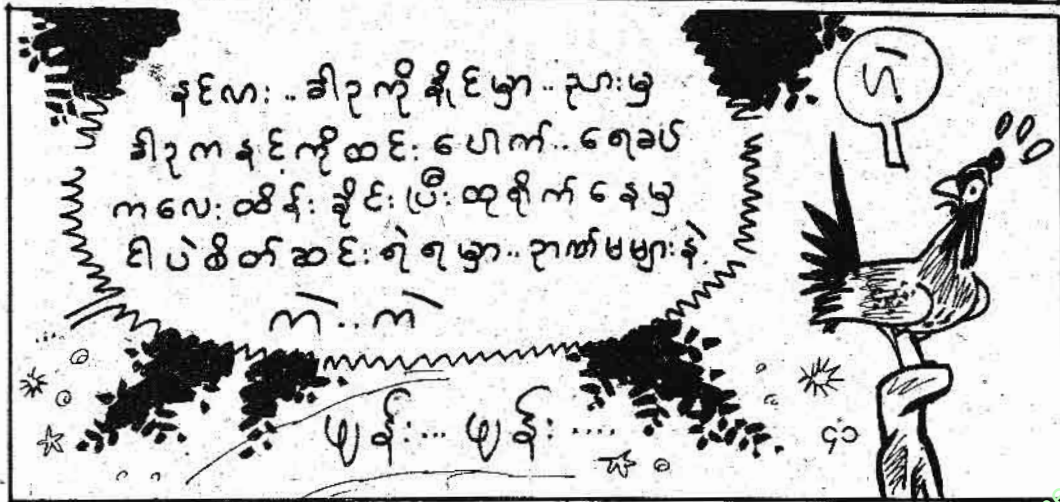 နင်လား..ခါဥကိုနိုင်မှာ..ညားမှ
ခါဥကနင့်ကိုထင်းပေါက်..ရေခပ်
ကလေးထိန်းခိုင်းပြီးထုရိုက်နေမှ
ငါပဲစိတ်ဆင်းရဲရမှာ..ဉာဏ်မများနဲ့
ကဲ..ကဲ
ဟဲ့
ဖျန်း... ဖျန်း ....
၄၁